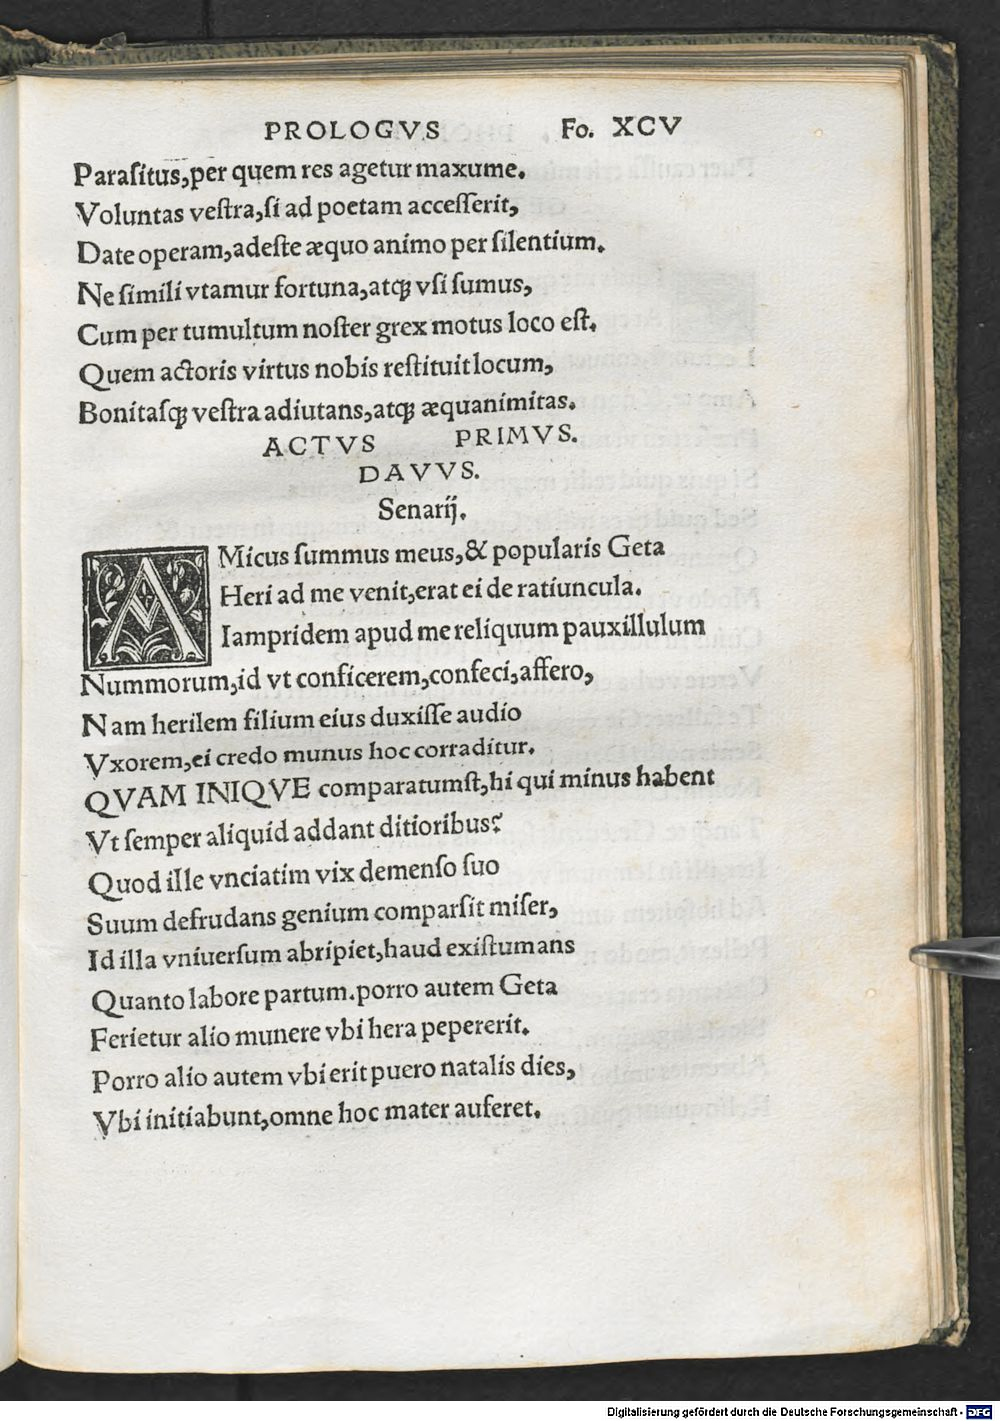 PROLOGVS Fo. XCV
Paraſitus,per quem res agetur maxume.
Voluntas veſtra,ſi ad poetam acceſſerit,
Date operam,adeſte æquo animo per ſilentium.
Ne ſimili vtamur fortuna,atqꝫ vſi ſumus,
Cum per tumultum noſter grex motus loco eſt.
Quem actoris virtus nobis reſtituit locum,
Bonitaſqꝫ veſtra adiutans,atqꝫ æquanimitas.
ACTVS PRIMVS.
DAVVS.
Senarij.
AMicus ſummus meus,& popularis Geta
Heri ad me venit,erat ei de ratiuncula.
Iampridem apud me reliquum pauxillulum
Nummorum,id vt conficerem,confeci,affero,
Nam herilem filium eius duxiſſe audio
Vxorem,ei credo munus hoc corraditur.
QVAM INIQVE comparatumſt,hi qui minus habent
Vt ſemper aliquid addant ditioribus?
Quod ille vnciatim vix demenſo ſuo
Suum defrudans genium comparſit miſer,
Id illa vniuerſum abripiet,haud exiſtumans
Quanto labore partum.porro autem Geta
Ferietur alio munere vbi hera pepererit.
Porro alio autem vbi erit puero natalis dies,
Vbi initiabunt,omne hoc mater auferet.
Digitalisierung gefördert durch die Deutsche Forschungsgemeinschaft - DFG